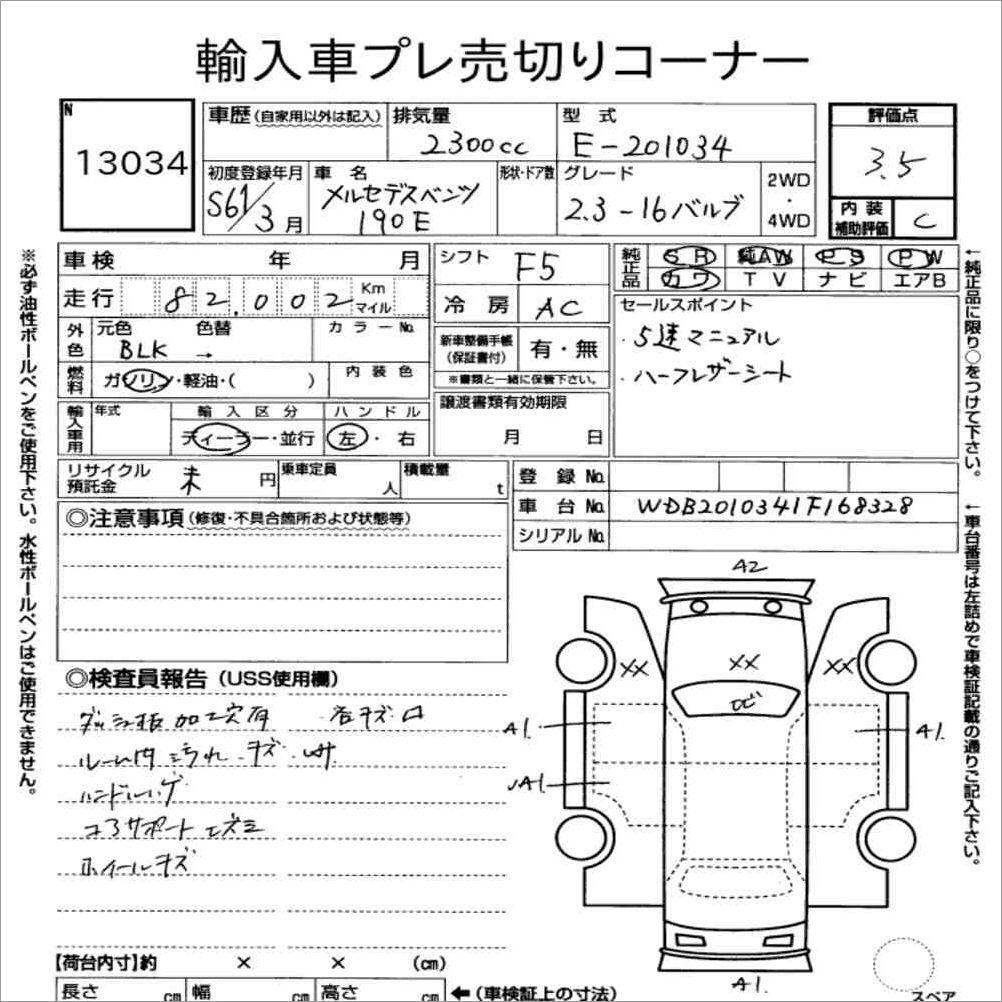 輸入車プレ売切りコーナー
N
13034
車歴 (自家用以外は記入)
排気量
2300cc
型式
E-201034
評価点
3.5
内装
補助評価
C
初度登録年月
S61/3月
車名
メルセデスベンツ
190E
形状・ドア数
グレード
2.3-16バルブ
2WD
・
4WD
車検 年 月
走行 82,002 Km マイル
外色 元色 色替 カラーNo.
BLK →
燃料 ガソリン・軽油・( )
内装色
輸入車用 年式 輸入区分 ハンドル
ディーラー・並行 左・右
シフト F5
冷房 AC
新車整備手帳
(保証書付)
有・無
※書類と一緒に保管下さい。
譲渡書類有効期限
月 日
純正品 SR 純AW PS PW
カワ TV ナビ エアB
セールスポイント
・5速マニュアル
・ハーフレザーシート
リサイクル
預託金
未 円
乗車定員 人
積載量 t
登録No.
車台No. WDB2010341F168328
シリアルNo.
◎注意事項 (修復・不具合箇所および状態等)
◎検査員報告 (USS使用欄)
加工穴有
ルーム内汚れ キズ
コアサポート
ホイールキズ
A2
XX XX XX
A1. A1.
A1.
A1.
【荷台内寸】約 × × (cm)
長さ cm 幅 cm 高さ cm ←(車検証上の寸法)
スペア
※必ず油性ボールペンをご使用下さい。水性ボールペンはご使用できません。
←純正品に限り○をつけて下さい。
←車台番号は左詰めで車検証記載の通りご記入下さい。